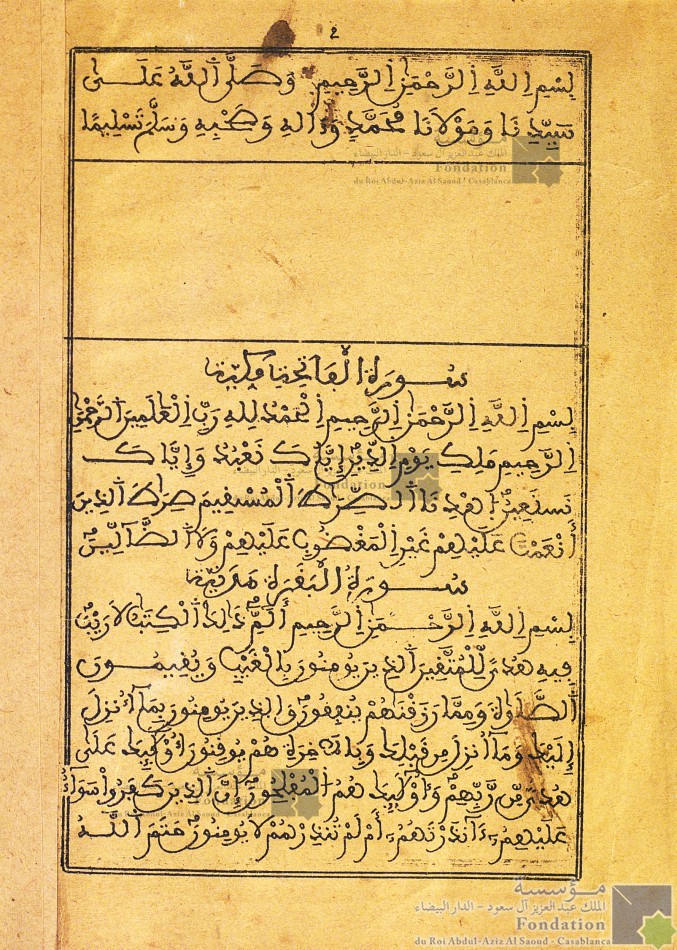 ٤
بِسْمِ اِللَّهِ اِلرَّحْمَٰنِ اِلرَّحِيمِ وَصَلَّى اَللَّهُ عَلَى
سَيِّدِنَا وَمَوْلَانَا مُحَمَّدٍ وَءَالِهِ وَصَحْبِهِ وَسَلَّمَ تَسْلِيمًا
سورة الْفاتحة مكية
بِسْمِ اِللَّهِ اِلرَّحْمَٰنِ اِلرَّحِيمِ اِلْحَمْدُ لِلهِ رَبِّ اِلْعَٰلَمِينَ اَلرَّحْمَٰنِ
اِلرَّحِيمِ مَلِكِ يَوْمِ اِلدِّينِ إِيَّاكَ نَعْبُدُ وَإِيَّاكَ
نَسْتَعِينُ اِهْدِنَا اَلصِّرَٰطَ اَلْمُسْتَقِيمَ صِرَٰطَ اَلذِينَ
أَنْعَمْتَ عَلَيْهِمْ غَيْرِ اِلْمَغْضُوبِ عَلَيْهِمْ وَلَا اَلضَّآلِّينَ
سورة الْبقرة مدنية
بِسْمِ اِللَّهِ اِلرَّحْمَٰنِ اِلرَّحِيمِ أَلَمِّ ذَٰلِكَ اَلْكِتَٰبُ لَا رَيْبَ
فِيهِ هُدًى لِّلْمُتَّقِينَ اَلذِينَ يُومِنُونَ بِالْغَيْبِ وَيُقِيمُونَ
اَلصَّلَوٰةَ وَمِمَّا رَزَقْنَٰهُمْ يُنفِقُونَ وَالذِينَ يُومِنُونَ بِمَآ أُنزِلَ
إِلَيْكَ وَمَآ أُنزِلَ مِن قَبْلِكَ وَبِالَاخِرَةِ هُمْ يُوقِنُونَ أُوْلَٰٓئِكَ عَلَىٰ
هُدًى مِّن رَّبِّهِمْ وَأُوْلَٰٓئِكَ هُمُ اُلْمُفْلِحُونَ إِنَّ اَلذِينَ كَفَرُواْ سَوَآءٌ
عَلَيْهِمُۥٓ ءَآنذَرْتَهُمُۥٓ أَمْ لَمْ تُنذِرْهُمْ لَا يُومِنُونَ خَتَمَ اَللَّهُ
مؤسسة
الملك عبد العزيز آل سعود - الدار البيضاء
Fondation
du Roi Abdul-Aziz Al Saoud - Casablanca